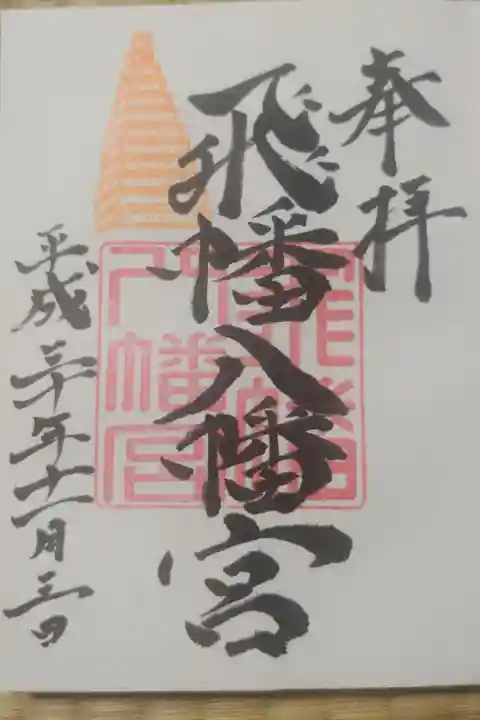 奉拝
飛幡八幡宮
飛幡
八幡宮
平成三十年十一月三日